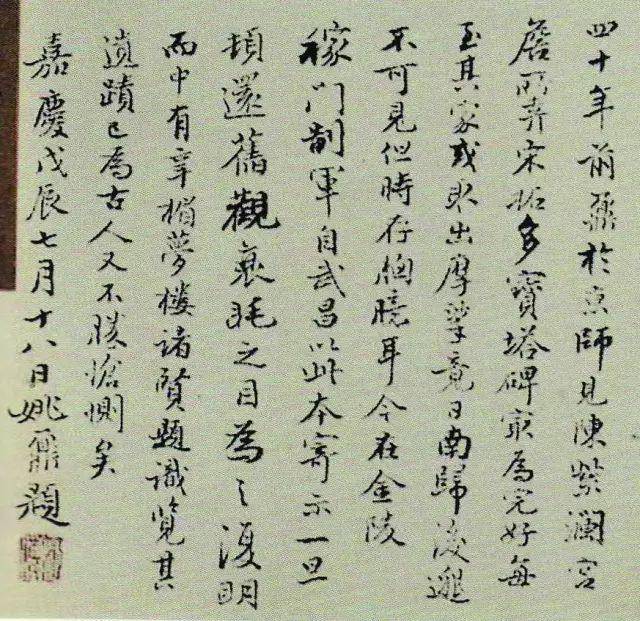 四十年前鼐於京師見陳紫瀾宮
詹所弆宋拓多寶塔碑最為完好每
至其家或求出摩挲竟日南歸後邈
不可見但時存胸臆耳今在金陵
稼門制軍自武昌以此本寄示一旦
頓還舊觀衰眊之目為之復明
而中有辛楣夢樓諸賢題識覽其
遺蹟已為古人又不勝愴惻矣
嘉慶戊辰七月十八日姚鼐題